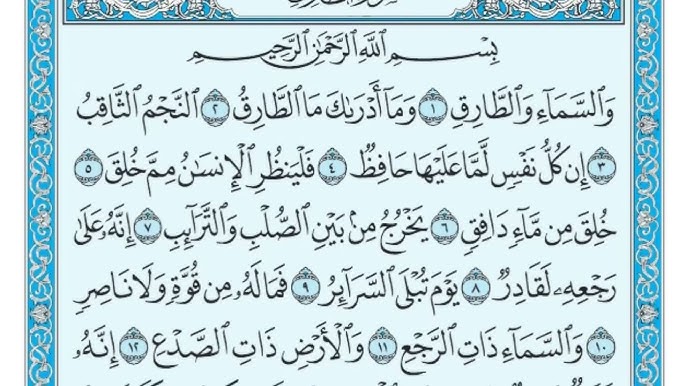 بِسْمِ اللَّهِ الرَّحْمَٰنِ الرَّحِيمِ
وَالسَّمَاءِ وَالطَّارِقِ ١ وَمَا أَدْرَىٰكَ مَا الطَّارِقُ ٢ النَّجْمُ الثَّاقِبُ
٣ إِن كُلُّ نَفْسٍ لَّمَّا عَلَيْهَا حَافِظٌ ٤ فَلْيَنظُرِ الْإِنسَٰنُ مِمَّ خُلِقَ ٥
خُلِقَ مِن مَّاءٍ دَافِقٍ ٦ يَخْرُجُ مِنۢ بَيْنِ الصُّلْبِ وَالتَّرَائِبِ ٧ إِنَّهُۥ عَلَىٰ
رَجْعِهِۦ لَقَادِرٌ ٨ يَوْمَ تُبْلَى السَّرَائِرُ ٩ فَمَا لَهُۥ مِن قُوَّةٍ وَلَا نَاصِرٍ
١٠ وَالسَّمَاءِ ذَاتِ الرَّجْعِ ١١ وَالْأَرْضِ ذَاتِ الصَّدْعِ ١٢ إِنَّهُۥ